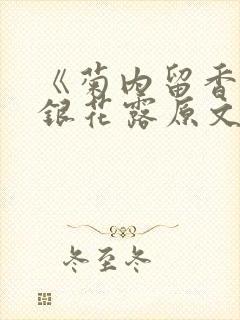 《菊内留香
银花露原文
冬至冬